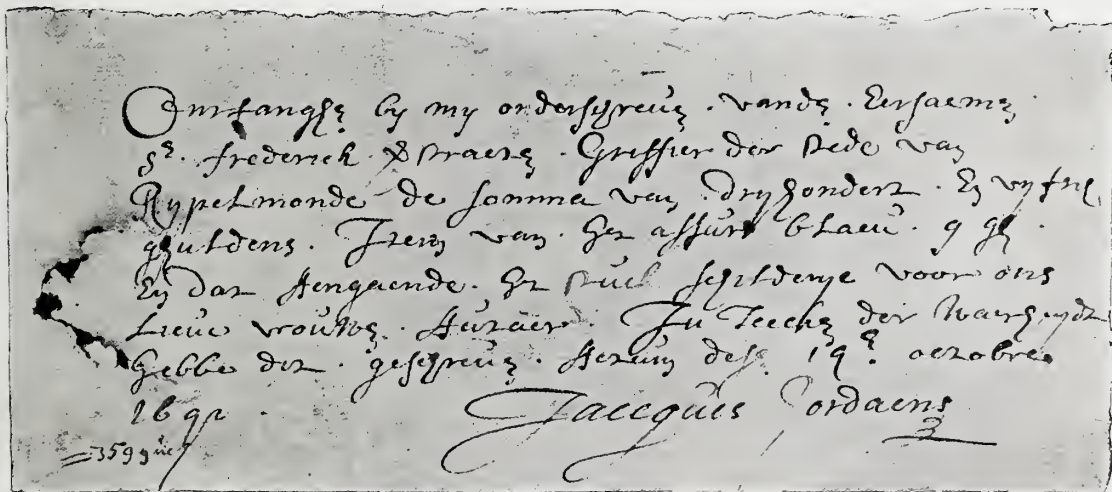 Omtfanghen by my onderschreven . vanden . Eersaemen
Sr . frederick . Straeten . Griffier der stede van
Rypelmonde de somma van dryhondert . En vyftich
guldens . Item van . het assurt blaeu . 9 gl .
En dat Aengaende . het stuck schilderye voor ons
Lieve vrouwen . Autaer . In Teecken der Waerheydt
hebbe dit . geschreven . Actum desen 19e octobre
Jacques Jordaens
=359 gul